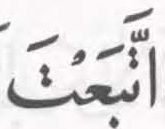 اتَّبَعْتَ